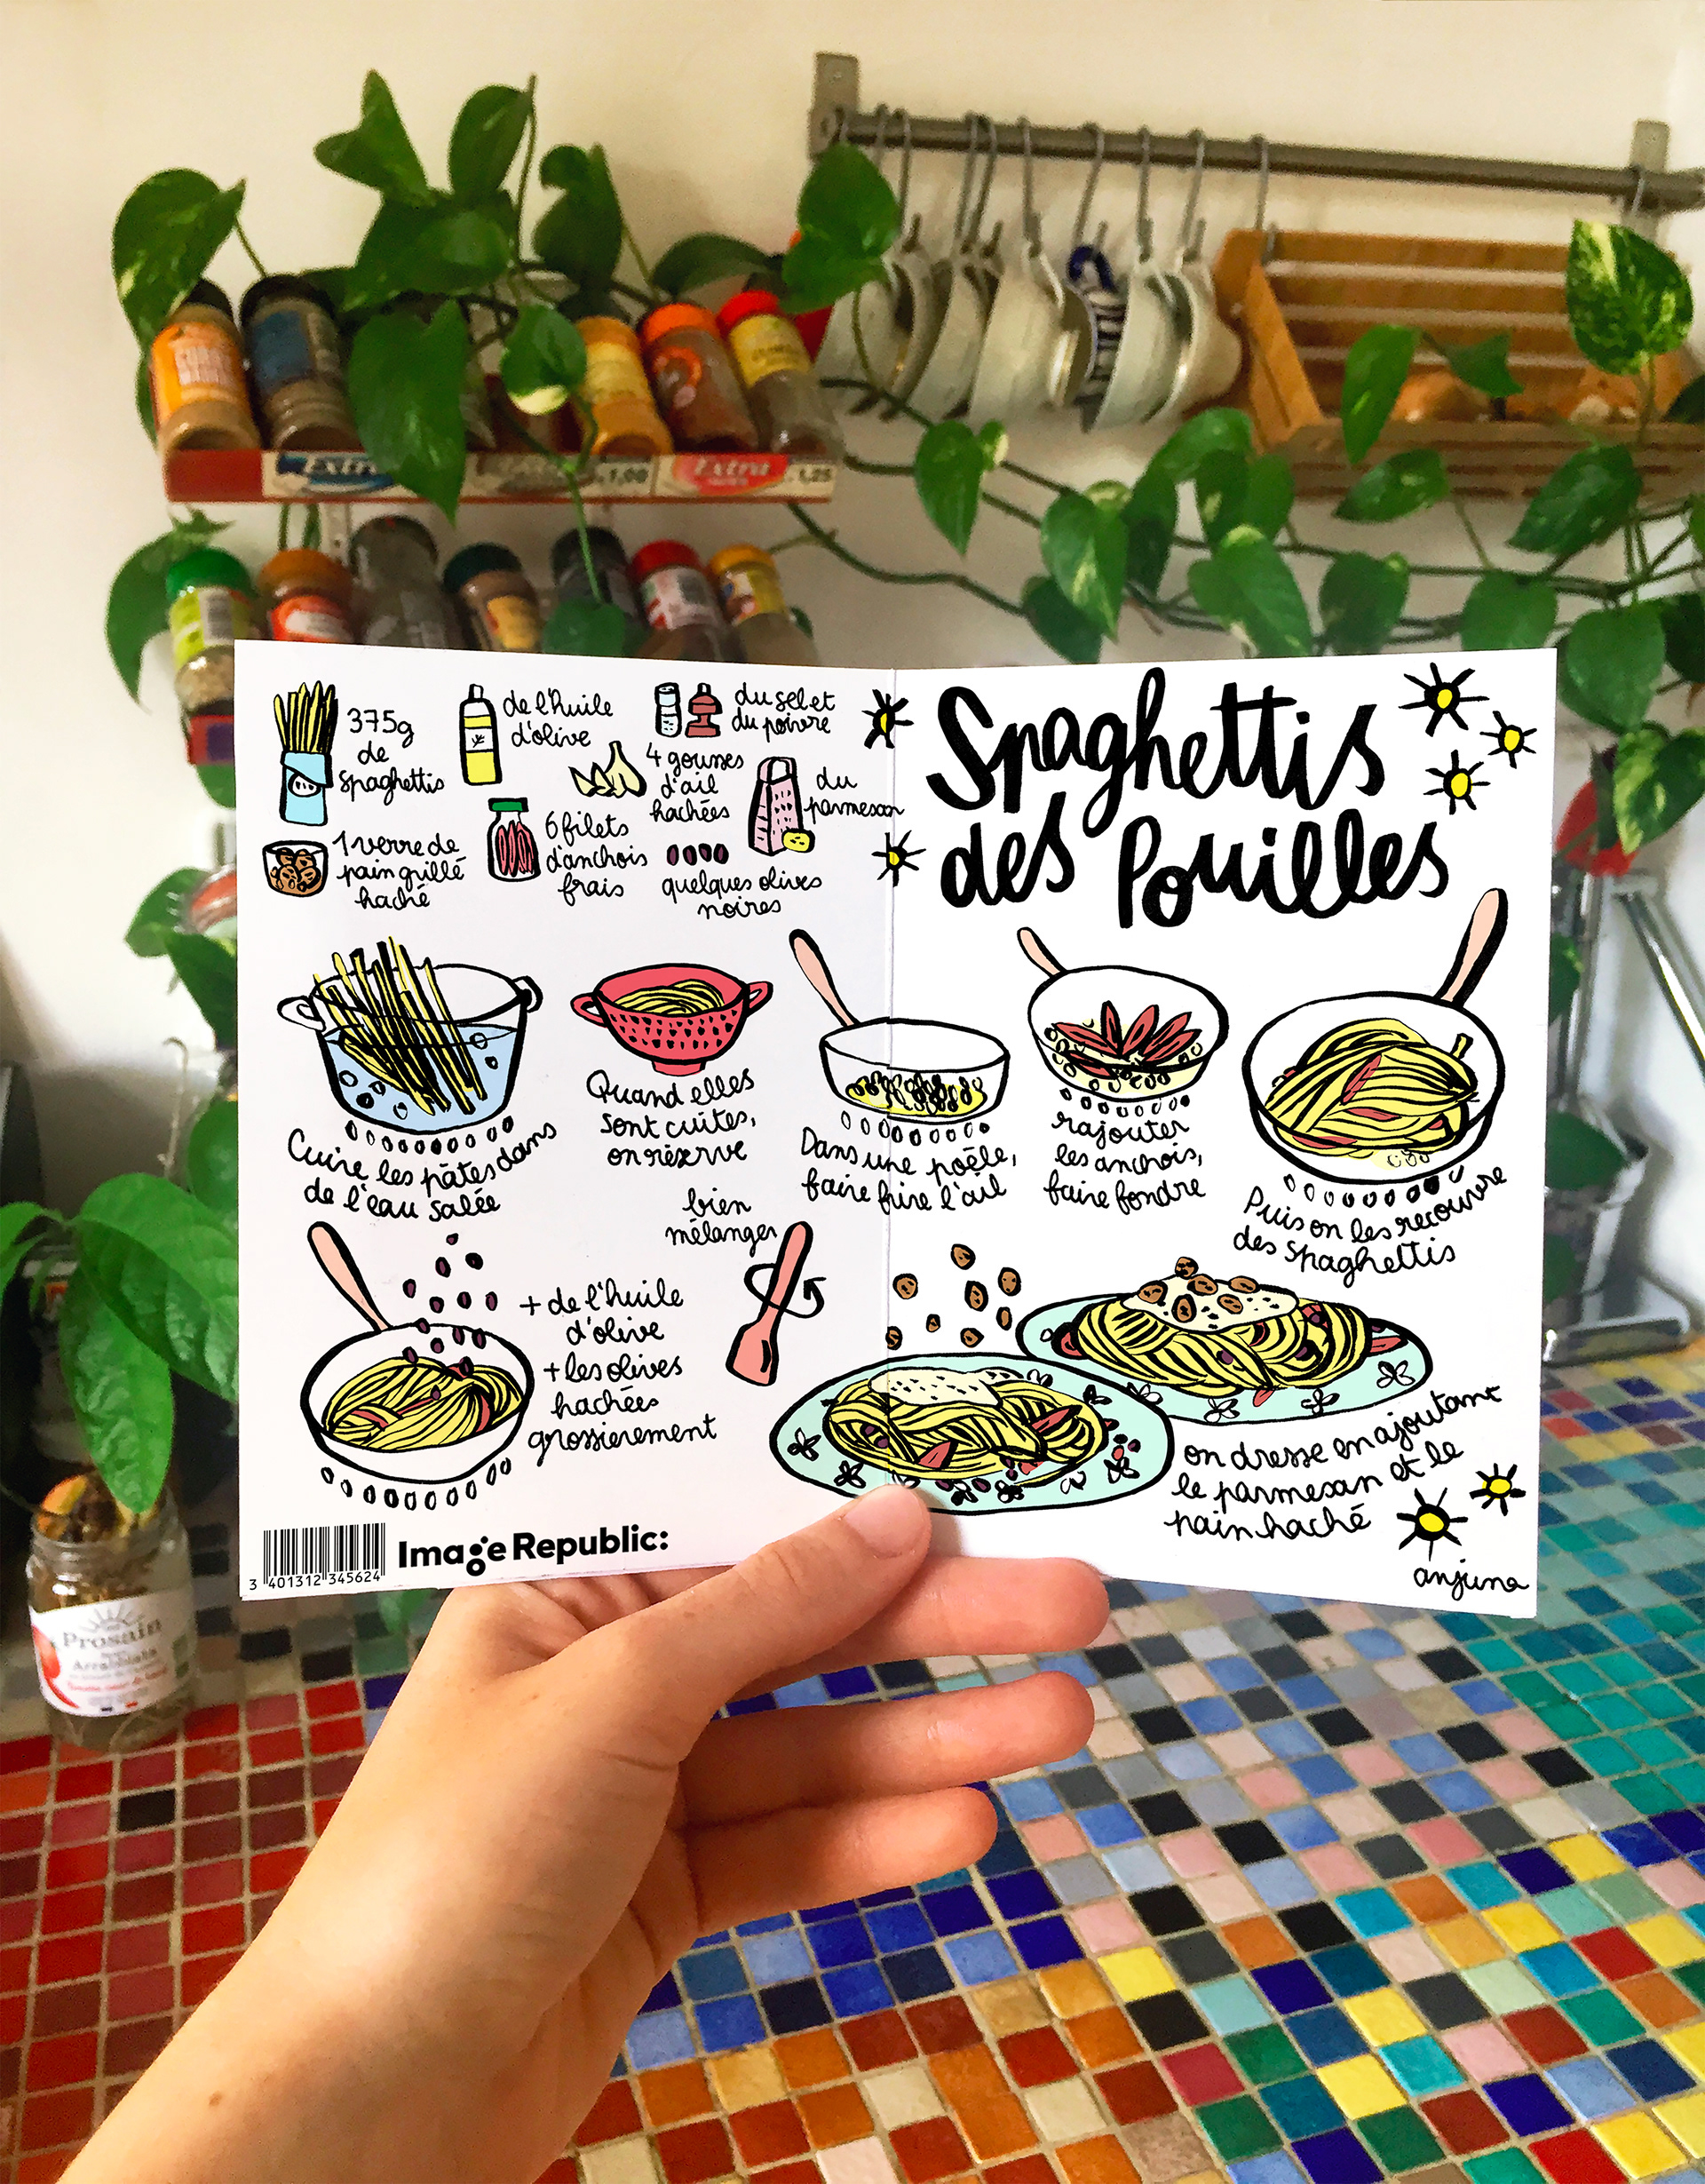 Extra
1,00
Extra
1,25
375g
de
spaghettis
de l'huile
d'olive
du sel et
du poivre
4 gousses
d'ail
hachées
du
parmesan
1 verre de
pain grillé
haché
6 filets
d'anchois
frais
quelques olives
noires
Spaghettis
des Pouilles
Cuire les pâtes dans
de l'eau salée
Quand elles
sont cuites,
on réserve
Dans une poêle,
faire frire l'ail
rajouter
les anchois,
faire fondre
Puis on les recouvre
des spaghettis
+ de l'huile
d'olive
+ les olives
hachées
grossièrement
bien
mélanger
on dresse en ajoutant
le parmesan et le
pain haché
anjuna
3 401312 345624
Image Republic:
Prosain
Arrabbiata